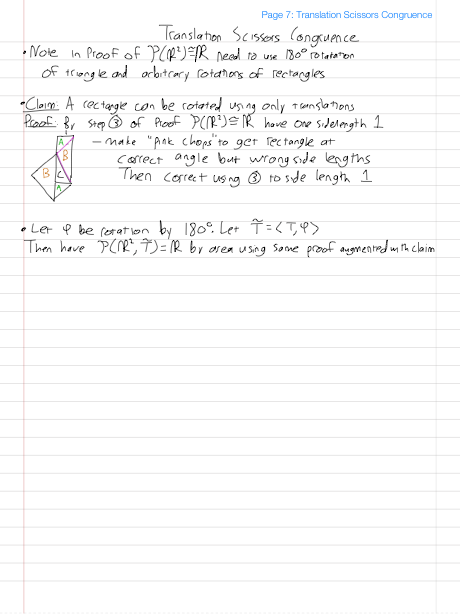 Page 7: Translation Scissors Congruence
Translation Scissors Congruence
• Note in Proof of P(ℝ²)≅ℝ need to use 180° rotatation
of triangle and arbitrary rotations of rectangles
• Claim: A rectangle can be rotated using only translations
Proof: By step ③ of Proof P(ℝ²)≅ℝ have one sidelength 1
– make "pink chops" to get rectangle at
correct angle but wrong side lengths
Then correct using ③ to side length 1
A
B
B
C
A
• Let φ be rotation by 180°. Let T̃=<T,φ>
Then have P(ℝ²,T̃)=ℝ by area using same proof augmented with claim